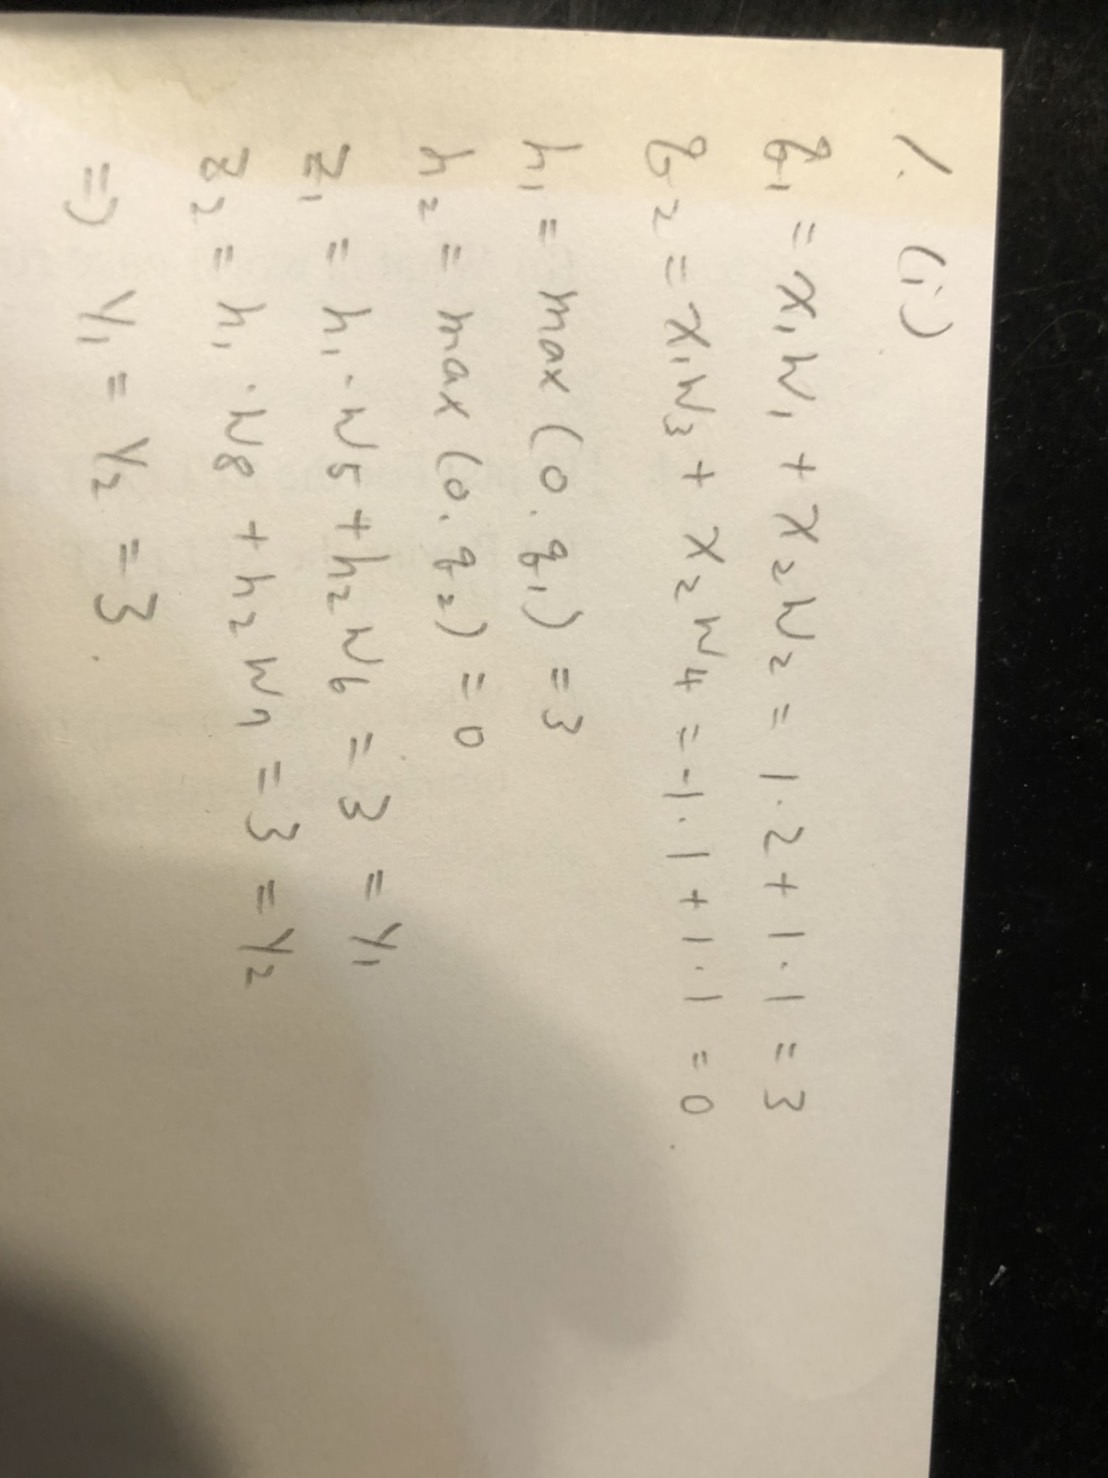 1. (i)
q₁ = x₁w₁ + x₂w₂ = 1·2 + 1·1 = 3
q₂ = x₁w₃ + x₂w₄ = -1·1 + 1·1 = 0
h₁ = max (0. q₁) = 3
h₂ = max (0. q₂) = 0
z₁ = h₁·w₅ + h₂w₆ = 3 = y₁
z₂ = h₁·w₈ + h₂w₇ = 3 = y₂
⇒ y₁ = y₂ = 3.